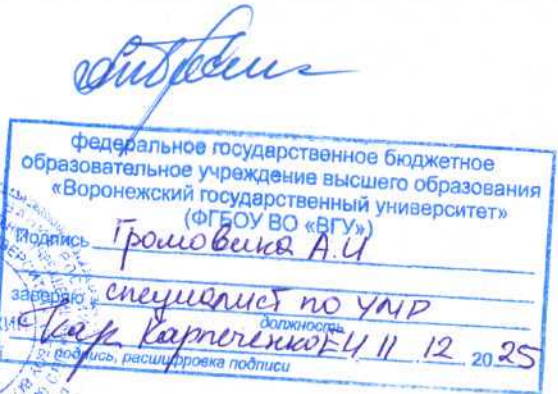 федеральное государственное бюджетное
образовательное учреждение высшего образования
«Воронежский государственный университет»
(ФГБОУ ВО «ВГУ»)
Подпись Громовика А.И
заверяю специалист по УМР
должность
Карпеченко ЕИ 11 12 2025
подпись, расшифровка подписи